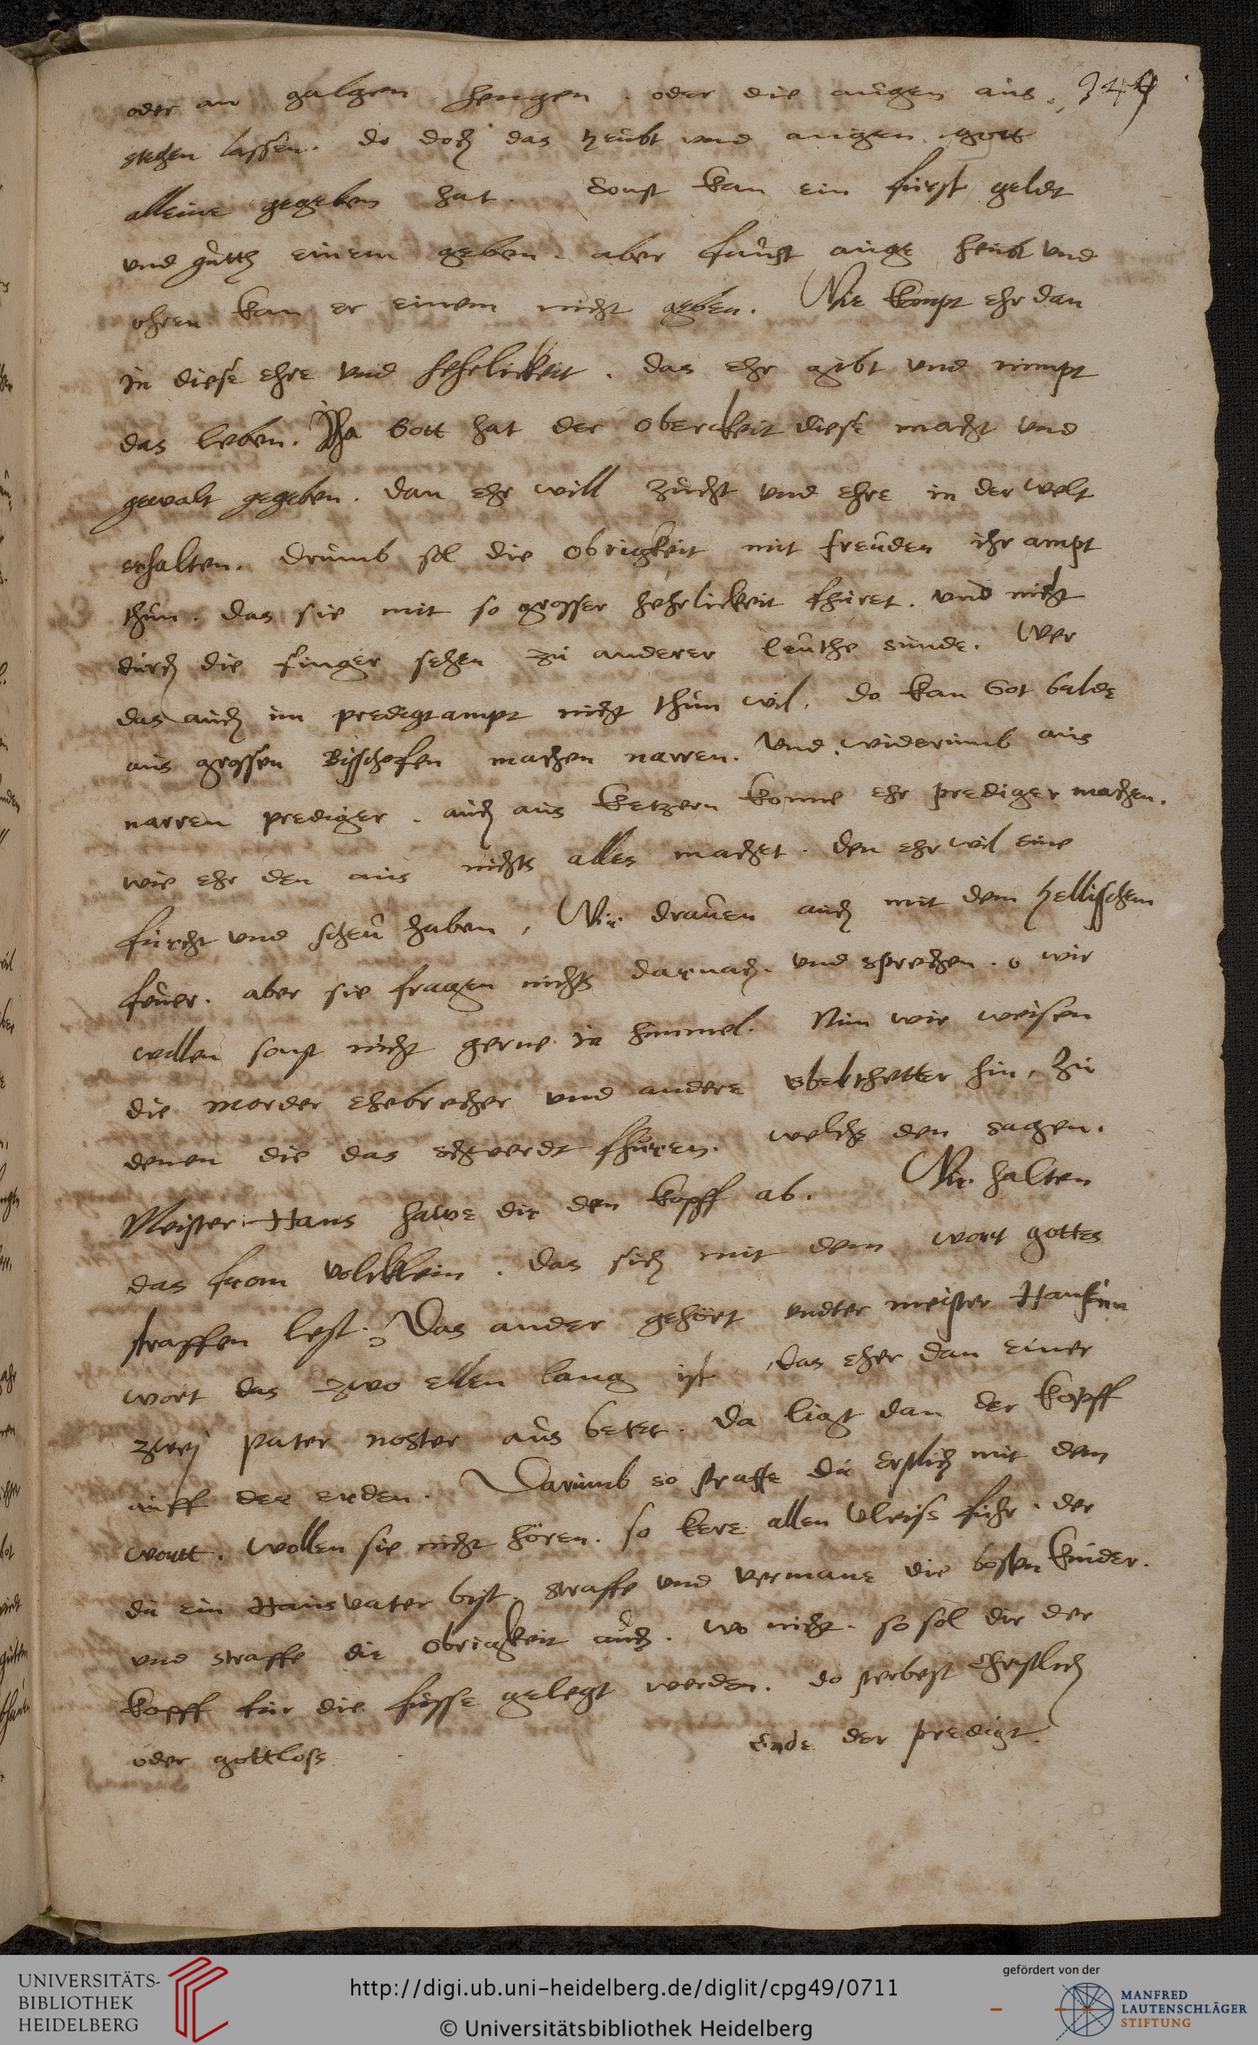 oder an galgen hengen. oder die augen aus 344
stechen lassen. do doch das heubt und augen gott
alleine gegeben hat. Sonst kan ein furst geldt
und gutth einem geben. aber faust auge heubt und
ohren kan er einem nicht geben. Wie kompt ehr dan
in diese ehre und hehrlickeit. das ehr gibt und nimpt
das leben. Ja Gott hat der oberckeit diese macht und
gewalt gegeben. dan ehr will zucht und ehre in der welt
erhalten. drumb sol die obrigkeit mit freuden ihr ampt
thun. das sie mit so grosser hehrlickeit fhuret. und nicht
durch die finger sehen zu anderer leuthe sunde. Wer
das auch im predigtampt nicht thun wil. do kan Got balde
aus grossen Bisschofen machen narren. und widerumb aus
narren prediger. auch aus ketzern konne ehr prediger machen.
wie ehr den aus nichts alles machet. den ehr wil eine
furcht und scheu haben, Wir drauen auch mit dem hellisschem
feuer. aber sie fragen nichts darnach. und sprechen. o wir
wollen sonst nicht gerne in himmel. Nun wir weisen
die morder ehebrecher und andere ubelthetter hin, zu
denen die das schwerdt fhuren. welche den sagen.
Meister Hans hawe dir den kopff ab. Wir halten
das from volcklein. das sich mit dem wort gottes
straffen lest. Das ander gehört undter meister Hansen
wort das zwo ellen lang ist, das eher dan einer
zwej pater noster aus betet. da ligt dan der kopff
auff der erden. Darumb so straffe du erstlich mit dem
wortt. wollen sie nicht hören. so kere allen vleise fuhr. der
du ein Hausvater bist. straffe und vermane die bosen kinder.
und straffe die obrigkeit auch. wo nicht. so sol dir der
kopff fur die fusse gelegt werden. do sterbest christlich
oder gottloss
Ende der predigt.
UNIVERSITÄTS-
BIBLIOTHEK
HEIDELBERG
http://digi.ub.uni-heidelberg.de/diglit/cpg49/0711
© Universitätsbibliothek Heidelberg
gefördert von der
MANFRED
LAUTENSCHLÄGER
STIFTUNG